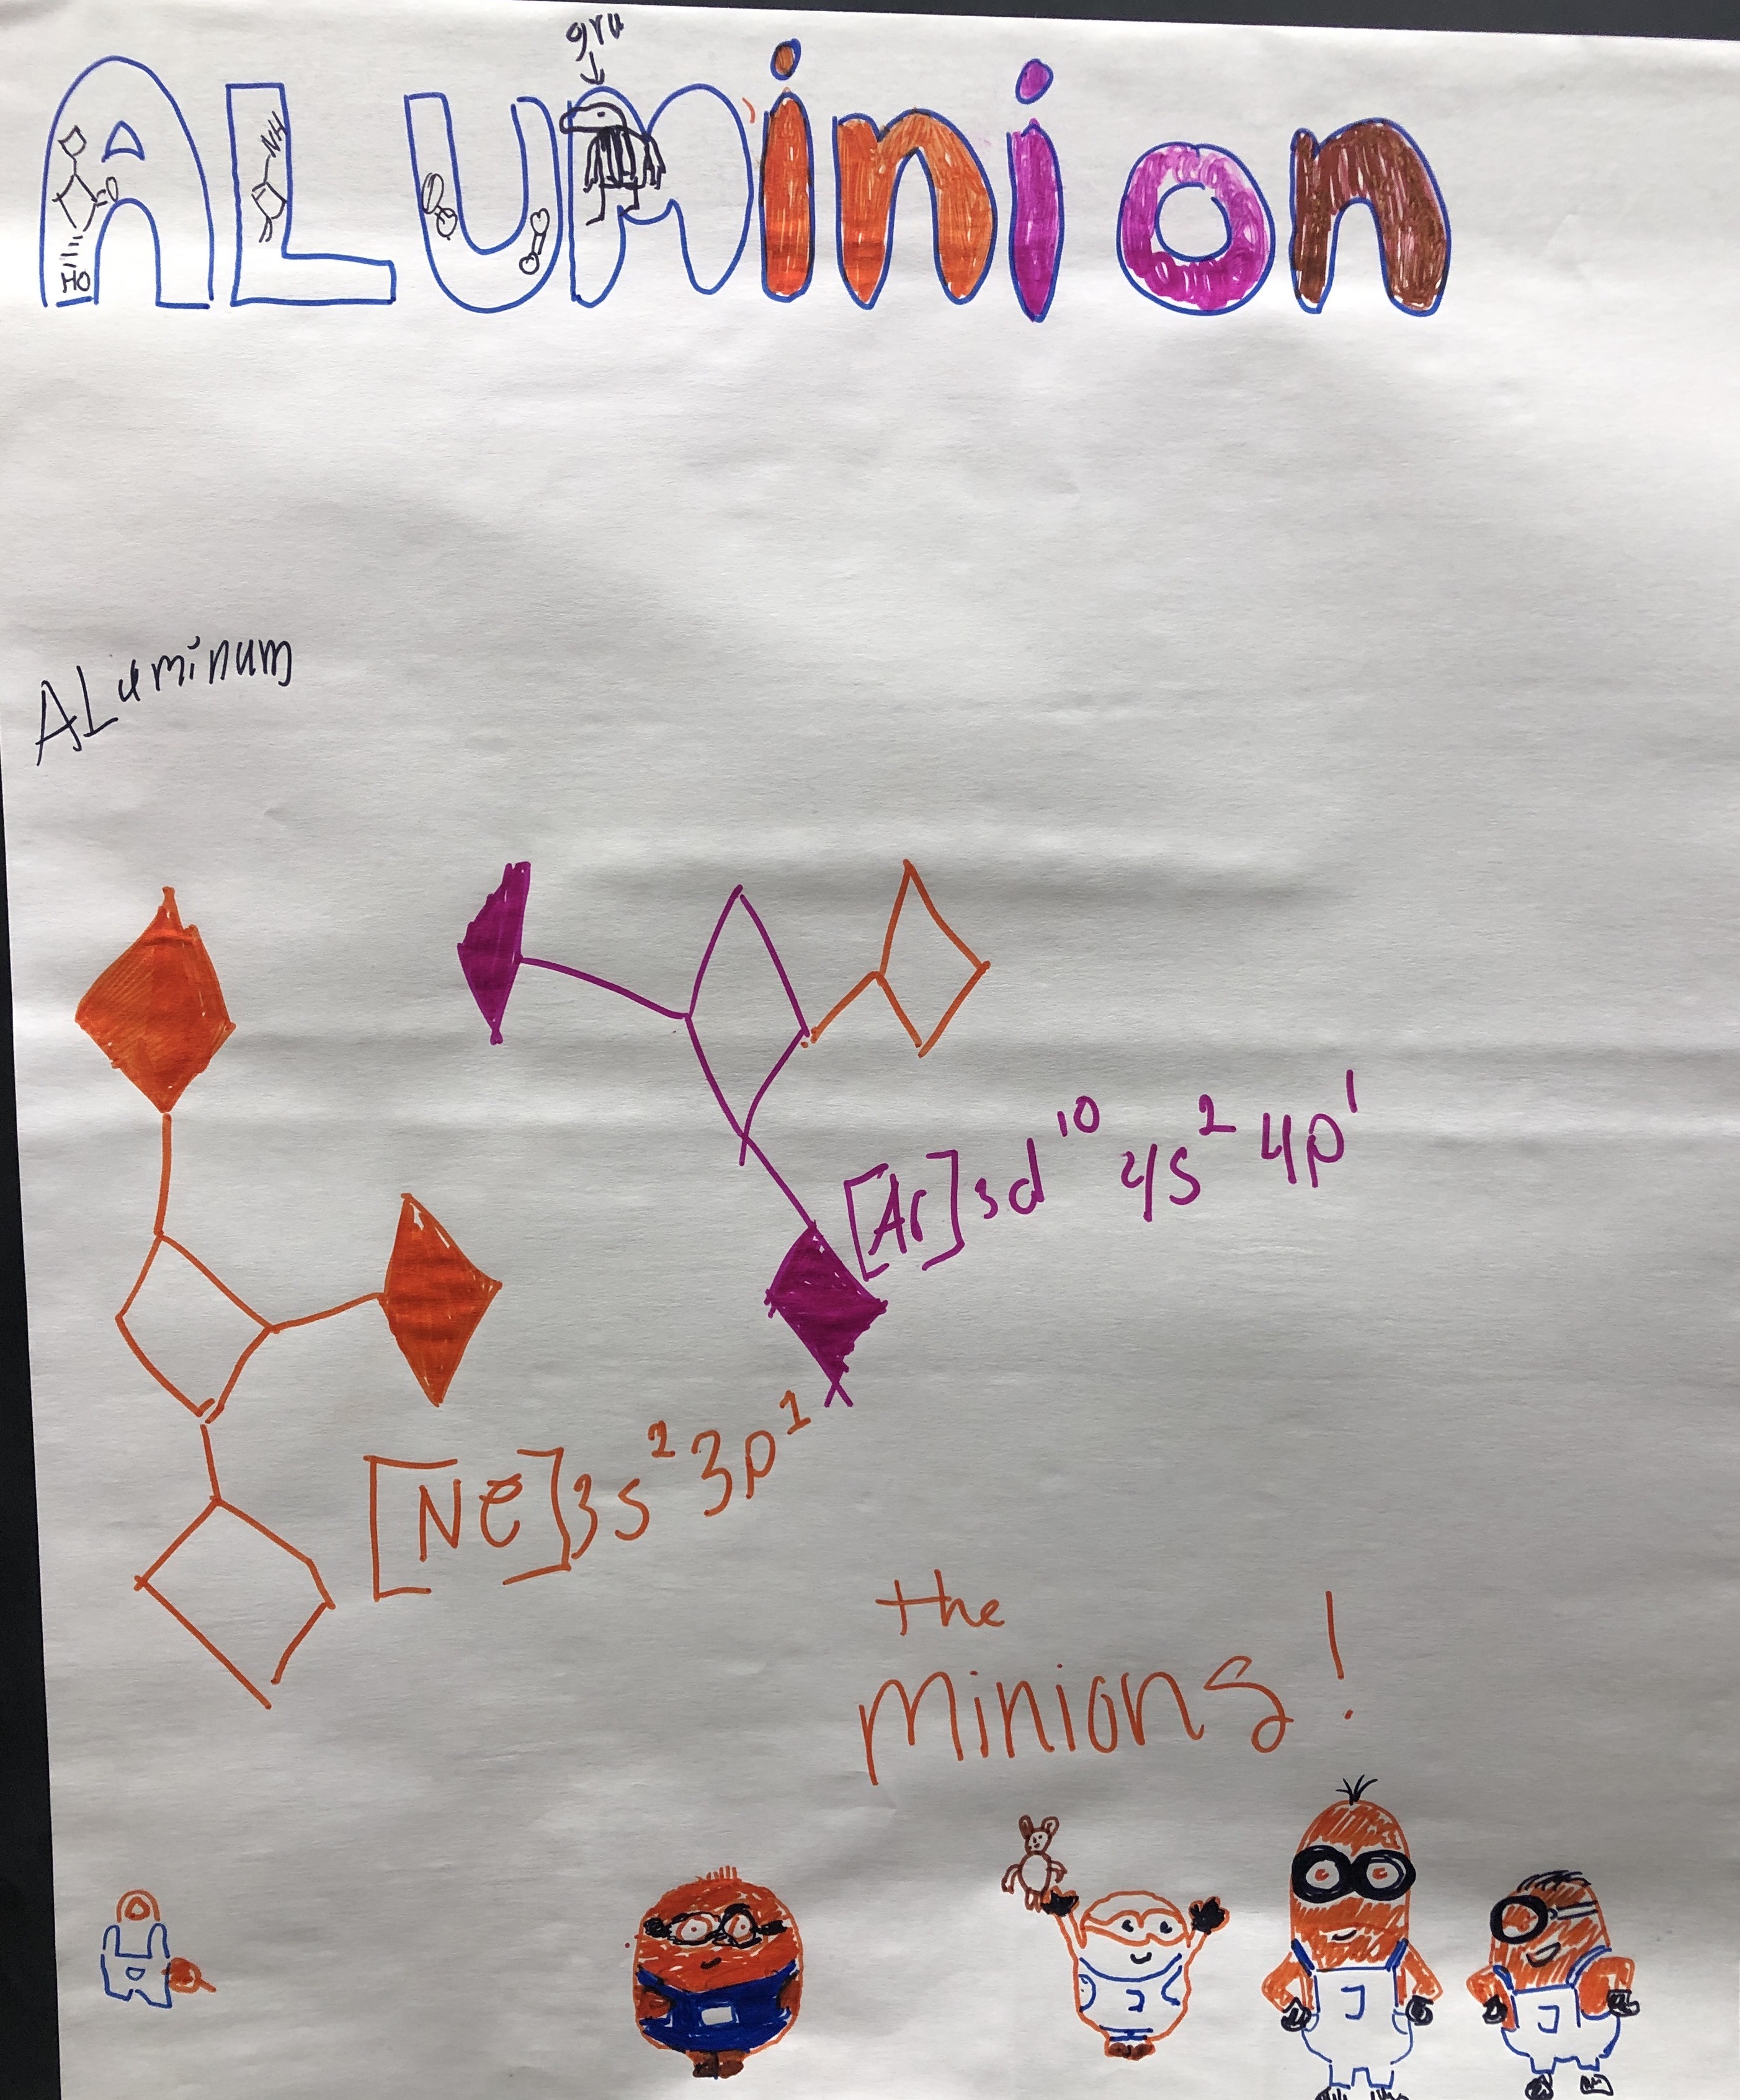 gru
ALUMinion
NH
HO
ALuminum
[Ar]3d¹⁰ 4s² 4p¹
[Ne]3s² 3p¹
the
minions!